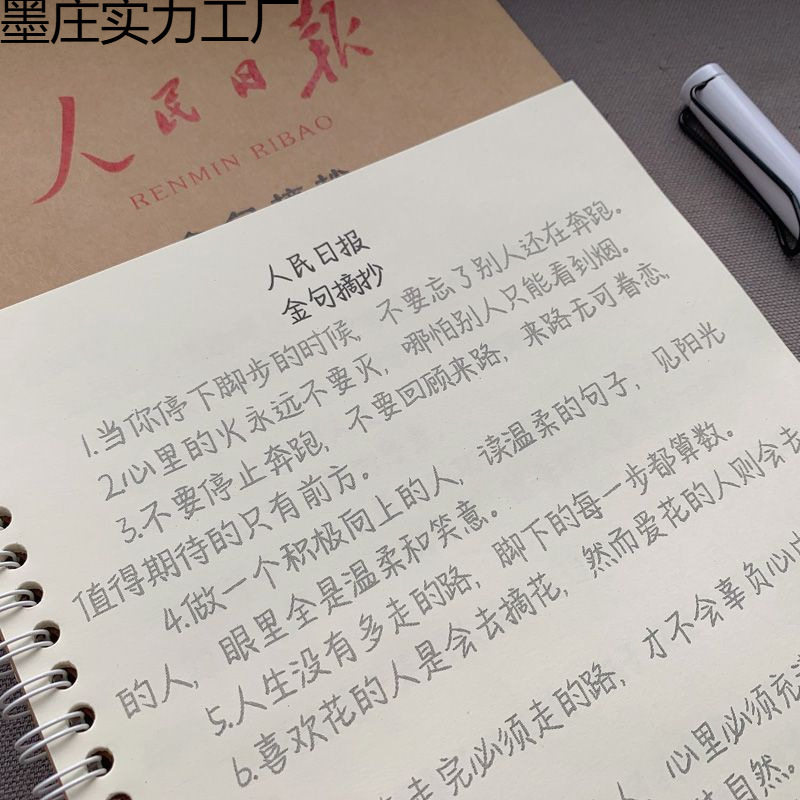 墨庄实力工厂
人民日报
RENMIN RIBAO
人民日报
金句摘抄
1.当你停下脚步的时候，不要忘了别人还在奔跑。
2.心里的火永远不要灭，哪怕别人只能看到烟。
3.不要停止奔跑，不要回顾来路，来路无可眷恋，
值得期待的只有前方。
4.做一个积极向上的人，读温柔的句子，见阳光
的人，眼里全是温柔和笑意。
5.人生没有多走的路，脚下的每一步都算数。
6.喜欢花的人是会去摘花，然而爱花的人则会去
走完必须走的路，才不会辜负心中
人，心里必须充
自然。